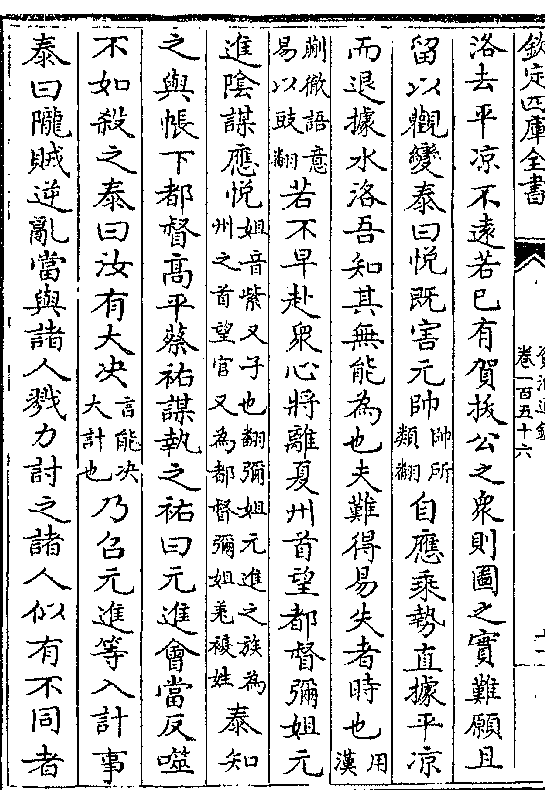 欽定四庫全書
資治通鑑
卷一百五十六
洛去平凉不遠若已有賀拔公之衆則圖之實難願且
留以觀變泰曰恱既害元帥帥所類翻自應乘勢直據平凉
而退據水洛吾知其無能為也夫難得易失者時也用漢
蒯徹語意易以豉翻若不早赴衆心將離夏州首望都督彌姐元
進陰謀應恱姐音紫又子也翻彌姐元進之族為州之首望官又為都督彌姐羌複姓泰知
之與帳下都督高平蔡祐謀執之祐曰元進會當反噬
不如殺之泰曰汝有大决言能决大計也乃召元進等入計事
泰曰隴賊逆亂當與諸人戮力討之諸人似有不同者